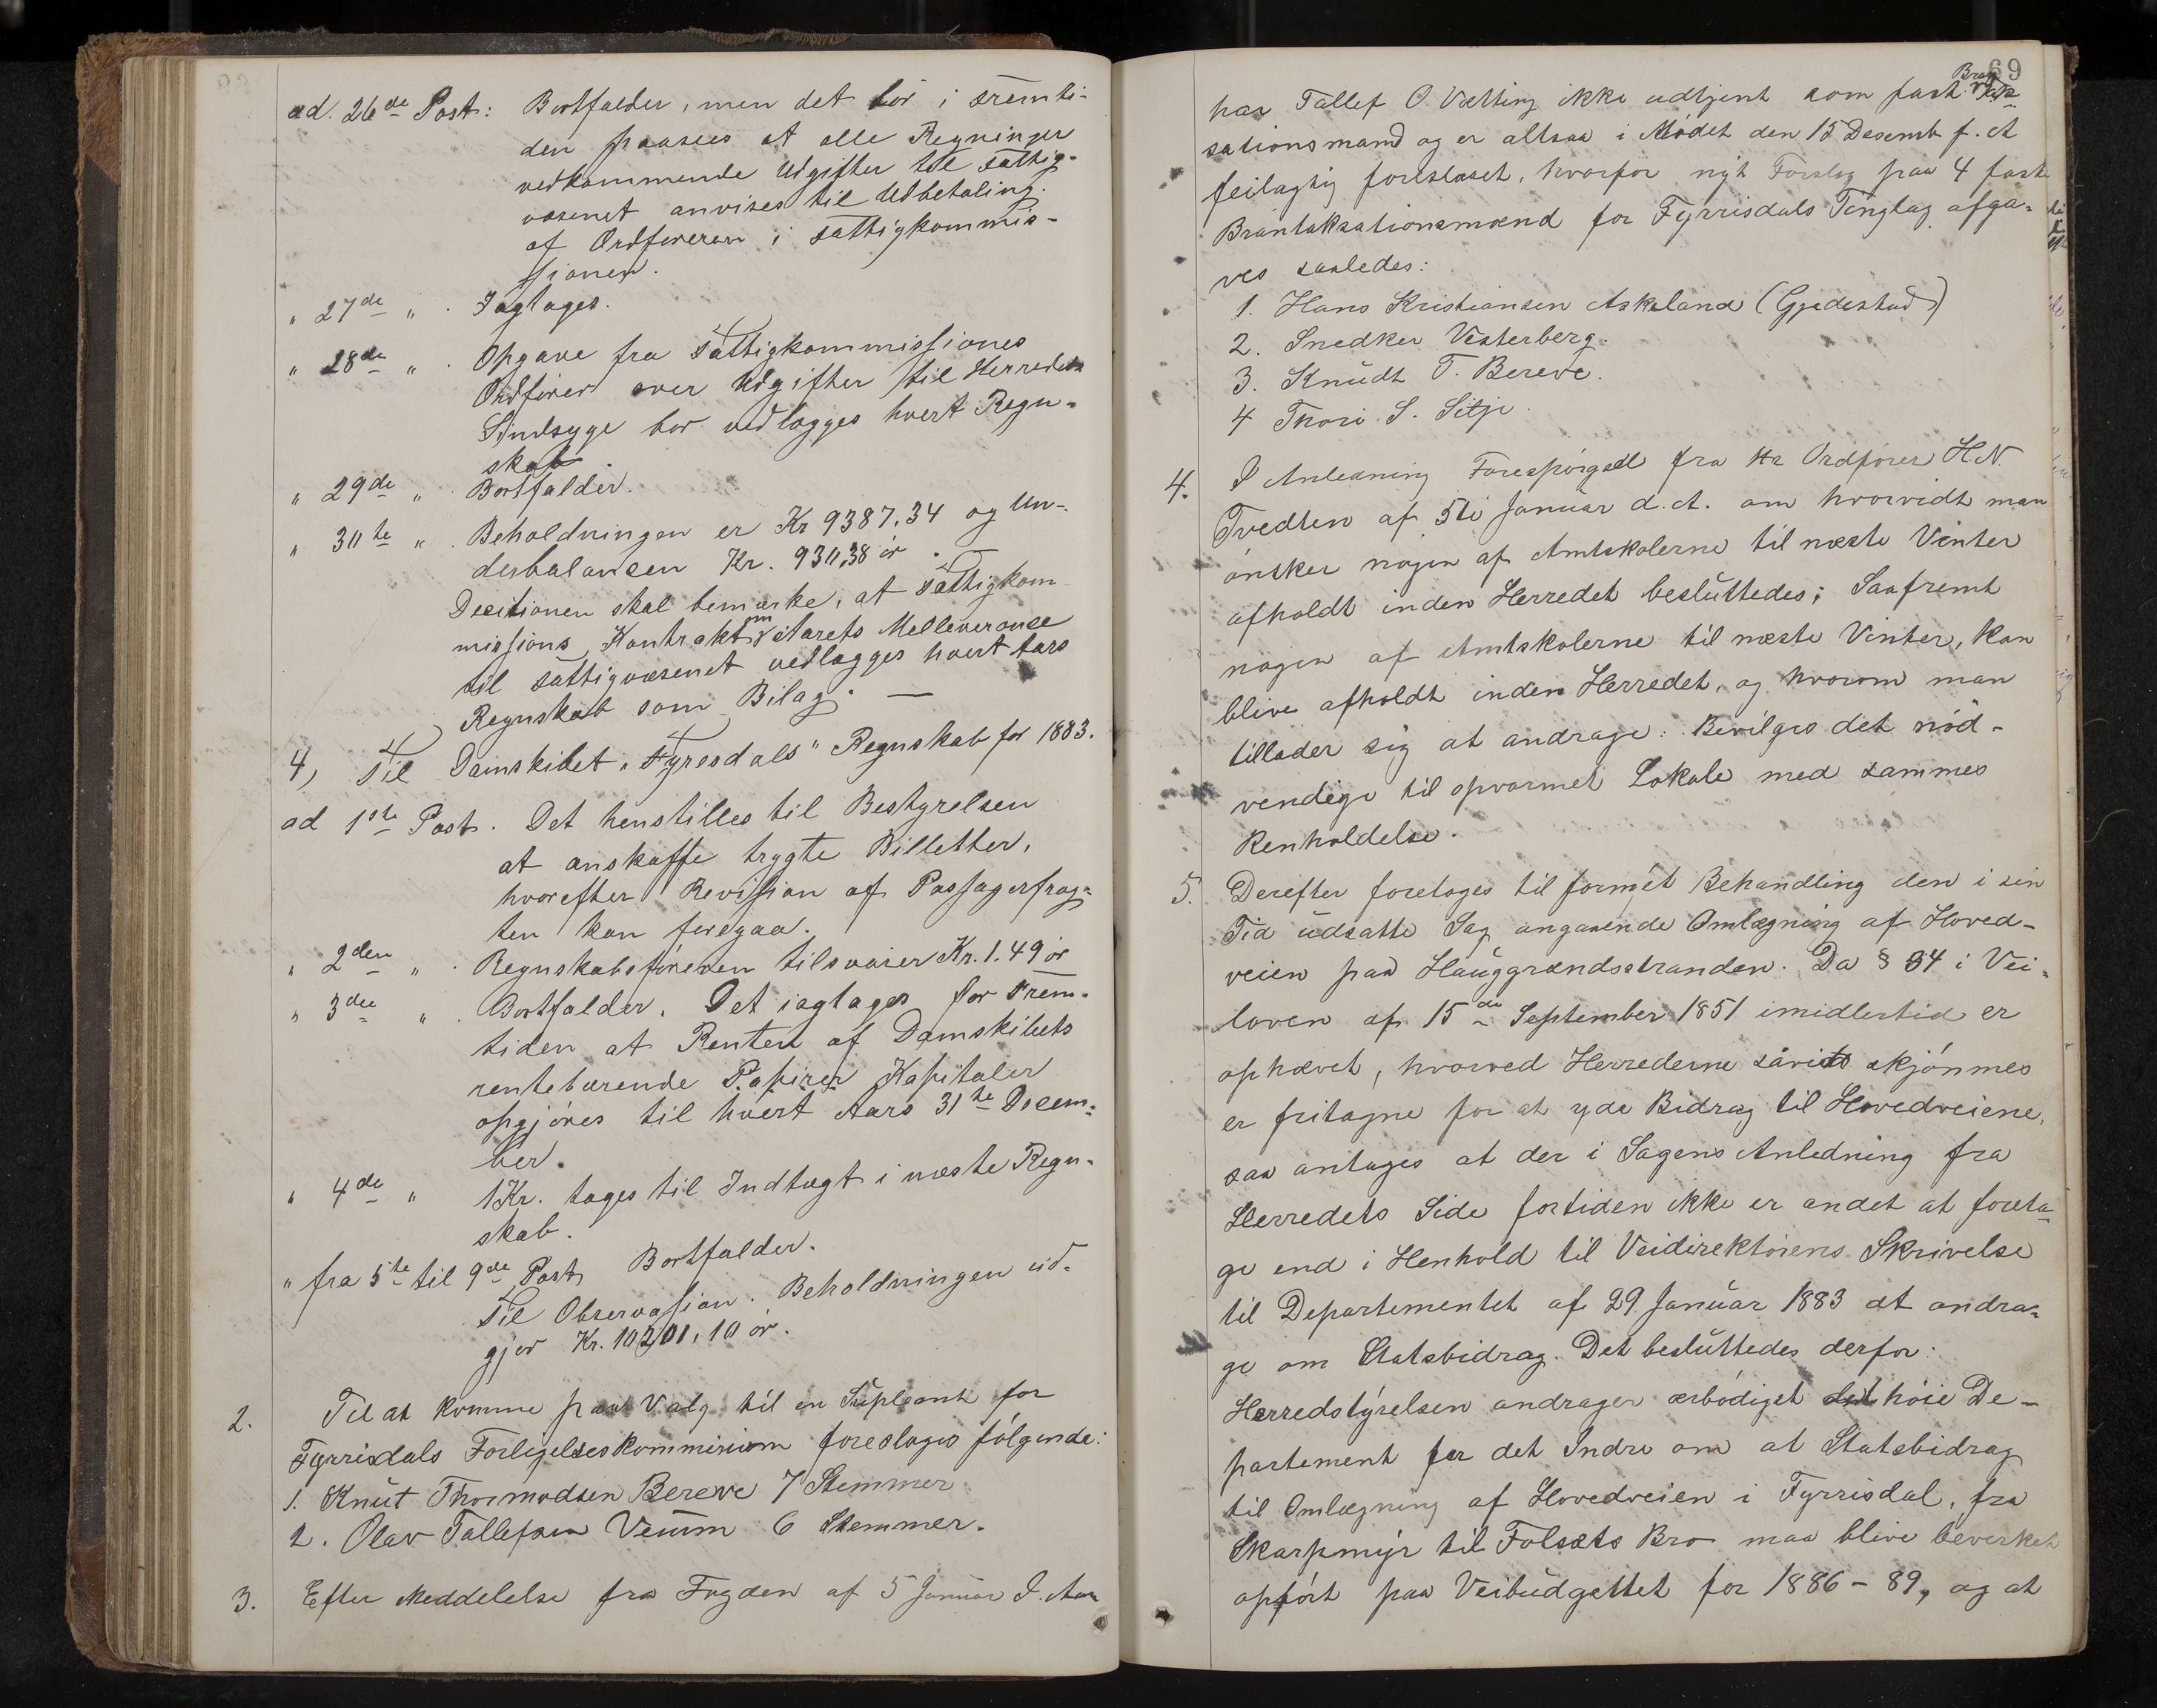 ad. 26de Post: Bortfalder, men det bør i Fremti-
den paasees at alle Regninger
vedkommende Udgifter til Fattig-
væsenet anvises til Udbetaling
af Ordføreren i Fattigkommis-
sionen.
" 27de " . Iagtages.
" 28de " . Opgave fra Fattigkommissiones
Ordfører over Udgifter til Herredets
Sindsyge bør vedlægges hvert Regn-
skab.
" 29de " . Bortfalder.
" 30te " . Beholdningen er Kr 9387,34 og Un-
derbalansen Kr. 930,38 ør.
Decitionen skal bemærke, at Fattigkom
missions Kontrakt om Aarets Melleverance
til Fattigvæsenet vedlægges hvert Aars
Regnskab som Bilag. —
4, Til Damskibet "Fyresdals" Regnskab for 1883.
ad 1ste Post. Det henstilles til Bestyrelsen
at anskaffe trygte Billetter,
hvorefter Revision af Passagerfrag-
ten kan foregaa.
" 2den " . Regnskabsføreren tilsvarer Kr. 1.49 ør
" 3die " . Bortfalder. Det iagtages for Frem-
tiden at Renten af Damskibets
rentebærende Papirer Kapitaler
opgjøres til hvert Aars 31te Decem-
ber.
" 4de " 1 Kr. tages til Indtægt i næste Regn-
skab.
" fra 5te til 9de Post Bortfalder.
Til Observasjon. Beholdningen ud-
gjør Kr. 10201,10 ør.
2. Til at komme paa Valg til en Supleant for
Fyrrisdals Forligelseskommission foreslages følgende:
1. Knut Thormodsen Bereve 7 Stemmer
2. Olav Tallefsen Veum 6 Stemmer.
3. Efter Meddelelse fra Fogden af 5 Januar d. Aar
69
har Tallef O. Vætting ikke udtjent som fast Bran
Tak-
sationsmand og er altsaa i Mødet den 15 Desemb f. A
feilagtig foreslaaet, hvorfor nyt Forslag paa 4 faste
Brantaksationsmænd for Fyrrisdals Tinglag afga-
ves saaledes:
1. Hans Kristiansen Askeland (Gjedestad)
2. Snedker Vesterberg.
3. Knudt T. Bereve.
4 Thori S. Sitje.
4. I Anledning Forespørgsel fra Hr Ordfører H.N.
Tvedten af 5te Januar d.A. om hvorvidt man
ønsker nogen af Amtskolerne til næste Vinter
afholdt inden Herredet besluttedes; Saafremt
nogen af Amtskolerne til næste Vinter, kan
blive afholdt inden Herredet, og hvorom man
tillader sig at andrage: Bevilges det nød-
vendige til opvarmet Lokale med sammes
Renholdelse.
5. Derefter foretages til fornyet Behandling den i sin
Tid udsatte Sag angaaende Omlægning af Hoved-
veien paa Hauggrændsstranden. Da § 34 i Vei-
loven af 15de September 1851 imidlertid er
ophævet, hvorved Herrederne saavidt skjønnes
er fritagne for at yde Bidrag til Hovedveiene,
saa antages at der i Sagens Anledning fra
Herredets Side fortiden ikke er andet at foreta-
ge end i Henhold til Veidirektørens Skrivelse
til Departementet af 29. Januar 1883 at andra-
ge om Statsbidrag. Det besluttedes derfor:
Herredstyrelsen andrager ærbødigst det høie De-
partement for det Indre om at Statsbidrag
til Omlægning af Hovedveien i Fyrrisdal, fra
Skarpmyr til Folsæts Bro maa blive bevirket
opført paa Veibudgettet for 1886-89, og at